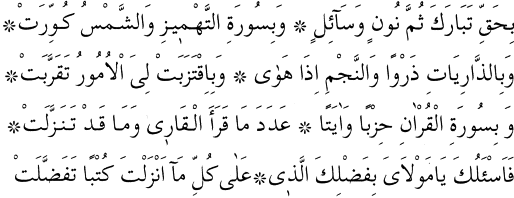 بِحَقِّ تَبَارَكَ ثُمَّ نُونٍ وَسَآئِلٍ ❊ وَبِسُورَةِ التَّهْمِيزِ وَالشَّمْسُ كُوِّرَتْ❊
وَبِالذَّارِيَاتِ ذَرْوًا وَالنَّجْمِ اِذَا هَوٰى ❊ وَبِاِقْتَرَبَتْ لِىَ الْاُمُورُ تَقَرَّبَتْ❊
وَ بِسُورَةِ الْقُرْاٰنِ حِزْبًا وَاٰيَتًا ❊ عَدَدَ مَا قَرَأَ الْقَارِى وَمَا قَدْ تَنَزَّلَتْ❊
فَاَسْئَلُكَ يَامَوْلَاىَ بِفَضْلِكَ الَّذِى❊عَلٰى كُلِّ مَآ اَنْزَلْتَ كُتْبًا تَفَضَّلَتْ